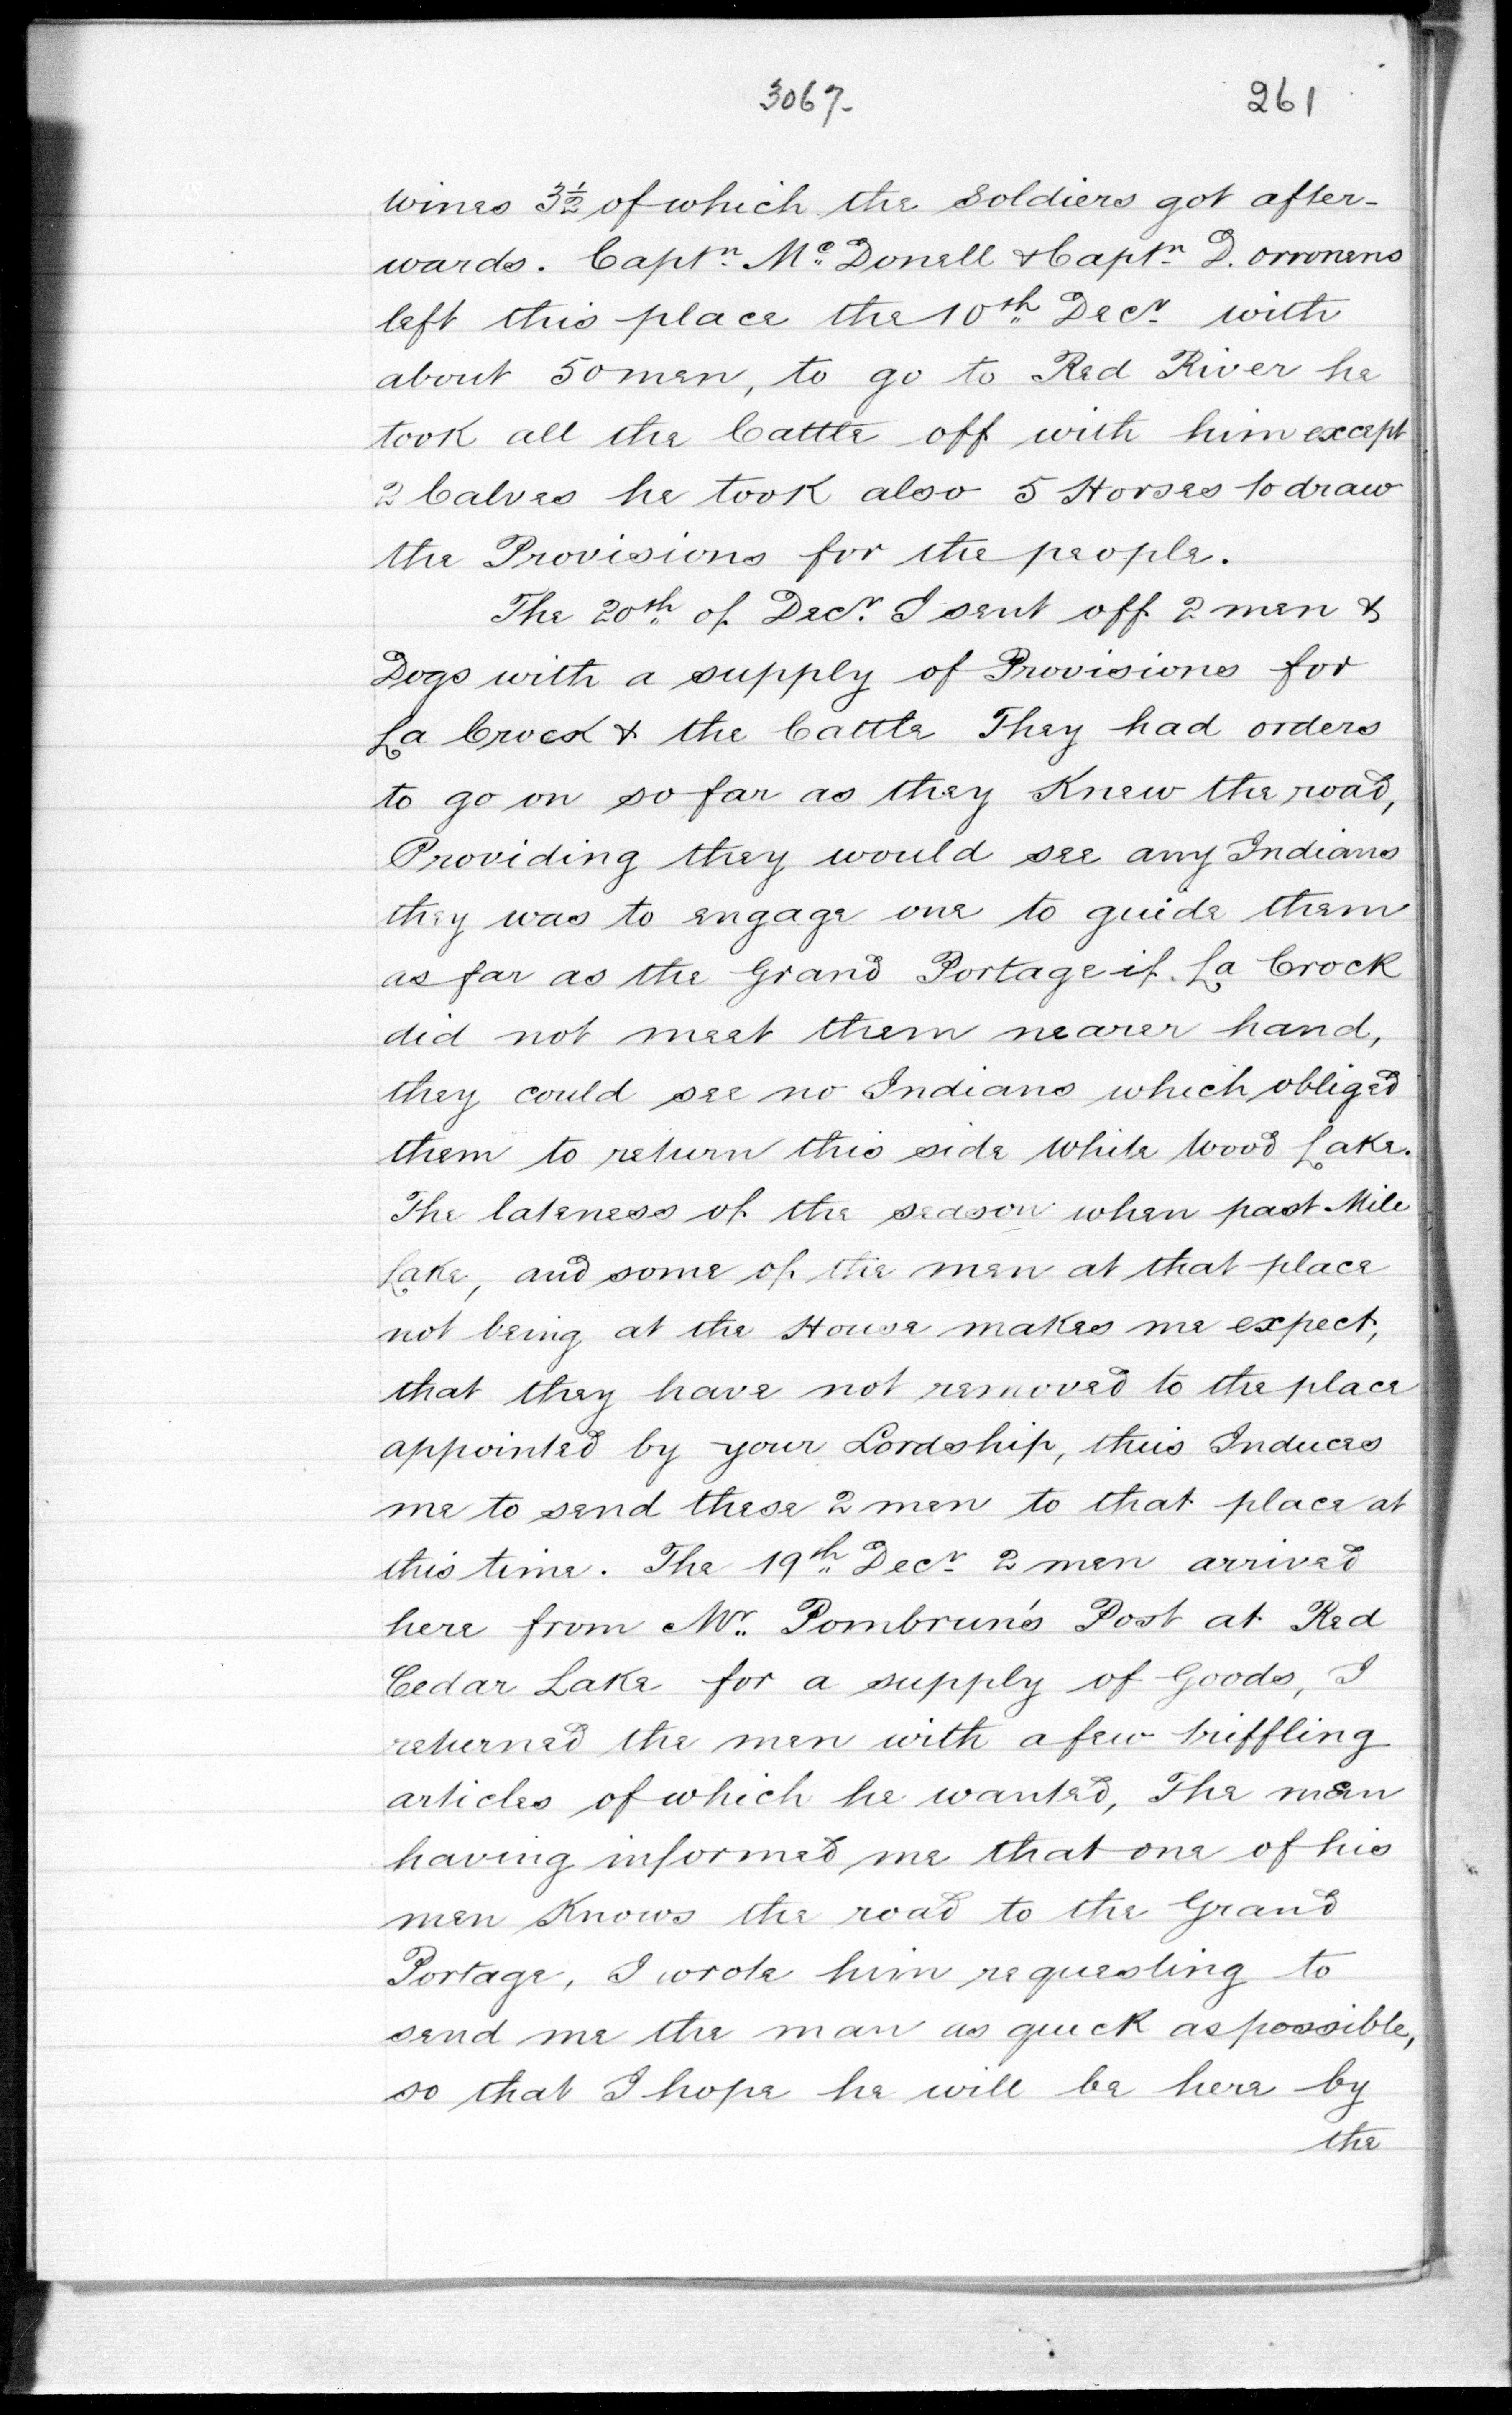 3067-
261
wines 3½ of which the Soldiers got after-
wards. Captn. Mc. Donell & Captn. D. orronens
left this place the 10th Decr. with
about 50 men, to go to Red River he
took all the Cattle off with him except
2 Calves he took also 5 Horses to draw
the Provisions for the people.
The 20th of Decr. I sent off 2 men &
Dogs with a supply of Provisions for
La Crock & the Cattle They had orders
to go on so far as they Knew the road,
Providing they would see any Indians
they was to engage one to guide them
as far as the Grand Portage if La Crock
did not meet them nearer hand,
they could see no Indians which obliged
them to return this side White Wood Lake.
The lateness of the season when past Mile
Lake, and some of the men at that place
not being at the House makes me expect,
that they have not removed to the place
appointed by your Lordship, this Induces
me to send these 2 men to that place at
this time. The 19th Decr. 2 men arrived
here from Mr. Pombrun's Post at Red
Cedar Lake for a supply of Goods, I
returned the men with a few triffling
articles of which he wanted, The men
having informed me that one of his
men Knows the road to the Grand
Portage, I wrote him requesting to
send me the man as quick as possible,
so that I hope he will be here by
the